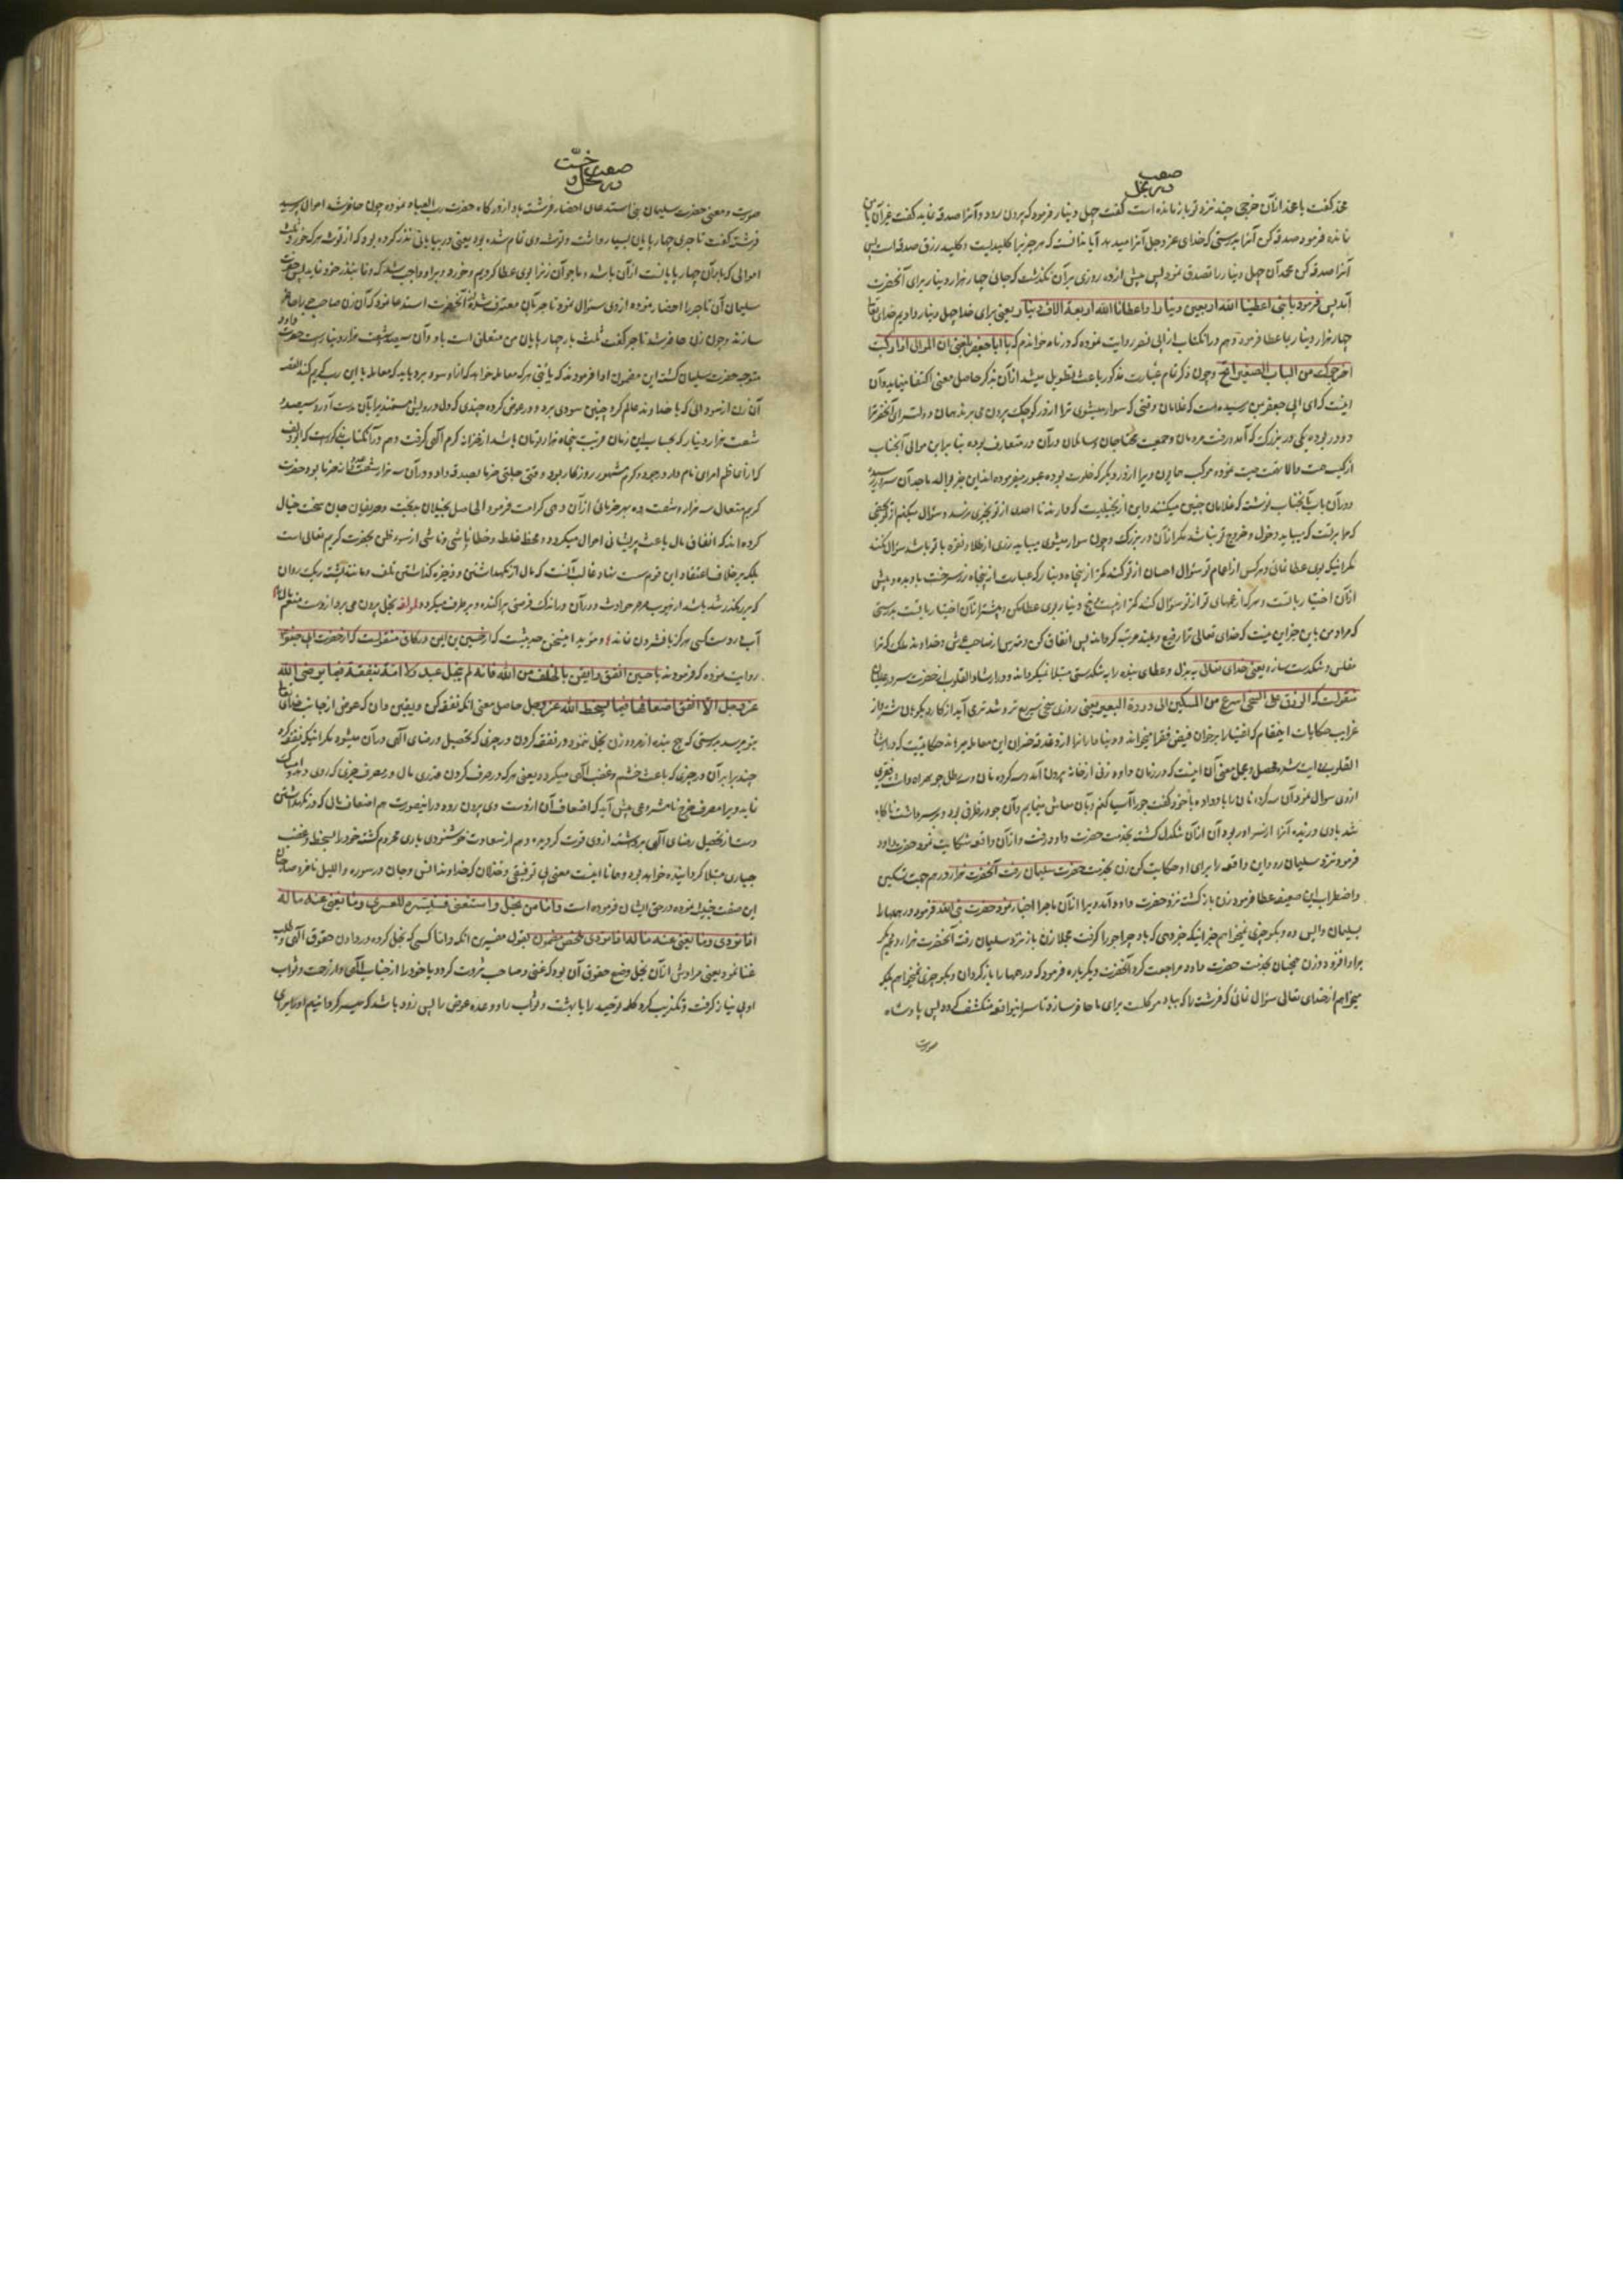 صفت
در بخل
محمد گفت با محمد از آن خرجی چند نزد تو باز مانده است گفت چهل دینار فرمود که برون رو و آنرا صدقه نماید گفت غیر آن با من
نمانده فرمود صدقه کن آنرا بدرستی که خدای عز و جل آنرا میدهد آیا ندانسته که هر چیز را کلیدیست و کلید رزق صدقه است پس
آنرا صدقه کن محمد آن چهل دینار را تصدق نمود پس پیش از ده روزی بر آن نگذشت که جائی چهار هزار دینار برای آنحضرت
آمد پس فرمود یا بنی اعطینا الله اربعین دینارا و اعطانا الله اربعة الاف دینار یعنی برای خدا چهل دینار دادیم خدای تعالی
چهار هزار دینار بما عطا فرمود و هم در آنکتاب از ابی نصر روایت نموده که در نامه خواندم که یا ابا جعفر بلغنی ان الموالی اذا رکبت
اخرجوک من الباب الصغیر الخ و چون ذکر تمام عبارت مذکور باعث تطویل میشد از آن بذکر حاصل معنی اکتفا مینماید و آن
اینست که ای ابی جعفر بمن رسیده است که غلامان وقتی که سوار میشوی ترا از در کوچک برون می برند همان دولتسرای آنحضرت را
دو در بوده یکی در بزرگ که آمد و رفت مردمان و جمعیت محتاجان و سائلان در آن در متعارف بوده بنا بر این موالی آنجناب
در آن باب بآنجناب نوشته که غلامان چنین میکنند و این از بخیلیست که دارند تا احدی از تو بخیری نرسد و سؤال میکنم از تو بحقی
که مرا بر تست که نباید دخول و خروج تو نباشد مگر از آن در بزرگ و چون سوار میشوی میباید زری از طلا و نقره با تو باشد سؤال نکند
مگر اینکه بوی عطا نمائی و هر کس از اعمام تو سؤال احسان از تو کند کمتر از پنجاه دینار که عبارت از پنجاه زر سرخست باو مده و بیش
از آن اختیار با تست و هر که از عمهای تو از تو سؤال کند کمتر از بیست و پنج دینار بوی عطا مکن و بیشتر از آن اختیار با تست بدرستی
که مراد من باین جز این نیست که خدای تعالی ترا رفیع و بلند مرتبه گرداند پس انفاق کن و مترس از صاحب عرش و خداوند ملک که ترا
مفلس و تنگدست سازد یعنی خدای تعالی به بذل و عطای بنده را به تنگدستی مبتلا نمیگرداند و در ارشاد القلوب از حضرت سرور علیه السلام
منقولست که الرزق علی السخی اسرع من السکین الی ذروة البعیر یعنی روزی سخی سریع تر و تندتر می آید از کارد بکوهان شتر و از
غرایب حکایات اینمقام که اغنیا را بر خوان فیض فقرا میخواند
القلوب روایت شده محصل و مجمل معنی آن اینست که در زمان داود زنی از خانه برون آمد و سه گرده نان و سه رطل جو همراه داشت فقیری
از وی سؤال نمود آن سه گرده نان را باو داده با خود گفت جو را آسیا کنم و بآن معاش مینمایم و آن جو در ظرفی بود و بر سر داشت ناگاه
شد بادی وزنده آنرا از سر او ربود آن زن از آن تنگدل گشته بخدمت حضرت داود رفت و از آن واقعه شکایت نمود حضرت داود
فرمود نزد سلیمان رو و این واقعه را برای او حکایت کن زن بخدمت حضرت سلیمان رفت آنحضرت هزار درهم جهت تسکین
و اضطراب این ضعیفه عطا فرمود زن بازگشته نزد حضرت داود آمد و ویرا از آن ماجرا اخبار نمود حضرت نبی الله فرمود درهمها را
بسلیمان واپس ده و بگو چیزی نمیخواهم جز اینکه خبر دهی که باد چرا جو را گرفت مجملا زن باز نزد سلیمان رفته آنحضرت هزار درهم دیگر
براو افزود و زن همچنان بخدمت حضرت داود مراجعت کرد آنحضرت دیگر باره فرمود که درهمها را باز گردان و بگو چیزی نمیخواهم بلکه
میخواهم از خدای تعالی سؤال نمائی که فرشته را که بباد موکلست برای ما حاضر سازد تا سر اینواقعه منکشف گردد پس پادشاه
صورت
صفت
در بخل و خسّت
صورت و معنی حضرت سلیمان بنی استدعای احضار فرشته باد از درگاه حضرت رب العباد نموده چون حاضر شد احوال پرسید
فرشته گفت تاجری چهارپایان بسیار داشت و توشه وی تمام شده بود یعنی در بیابانی نذر کرده بود که از توشه هر که خورد ثلث
اموالی که بار آن چهارپایانست از آن باشد و ما جو آن زنرا بوی عطا کردیم و خورد و براو واجب شد که وفا بنذر خود نماید پس حضرت
سلیمان آن تاجر را احضار نموده از وی سؤال نمود تاجر بآن معترف شده آنحضرت استدعا نمود که آن زن صاحب جو را حاضر
سازند و چون زن حاضر شد تاجر گفت ثلث بار چهارپایان من متعلق است باو و آن سیصد و شصت هزار دینار است حضرت داود
متوجه حضرت سلیمان گشته این مضمون ادا فرمودند که یا بنی هر که معامله خواهد که از او سود برد باید که معامله با این رب کریم کند القصه
آن زن از سودائی که با خداوند عالم کرد چنین سودی برد و در عوض گرده چندی که دل درویش مستمند را بآن بدست آورد سیصد و
شصت هزار دینار که بحساب این زمان قریب پنجاه هزار تومان باشد از خزانه کرم الهی گرفت و هم در آنکتاب مذکور است که ابو دلف
که از اعاظم امرای نامدار و بجود و کرم مشهور روزگار بود وقتی جملتی خرما بصدقه داد و در آن سه هزار و شصت دانه خرما بود حضرت
کریم متعال سه هزار و شصت ده بهر خرمائی از آن دهی کرامت فرمود
کرده اند که انفاق مال باعث پریشانی احوال میگردد و محض غلط و خطا ناشی و ناشی از سوء ظن بحضرت کریم تعالی است
بلکه بر خلاف اعتقاد این قوم سست نهاد غالب آنست که مال از نگهداشتن و ذخیره گذاشتن تلف و مانند تشت ریک روان
که بر رهگذر تند باشد از نهیب صرصر حوادث دوران در اندک فرصتی پراکنده و برطرف میگردد لمؤلفه بخل برون می برد از دست منعم مال را
آب در دست کسی هرگز بافشردن نماند و مؤید اینسخن حدیثیست که از حسین بن ایمن در کافی منقولست که از حضرت ابی جعفر
روایت نموده که فرمودند یا حسین انفق و ایقن بالخلف من الله فانه لم یبخل عبد و لا امة بنفقة فیما یرضی الله
عز و جل الا انفق اضعافها فیما یسخط الله عز و جل حاصل معنی آنکه نفقه کن و یقین دان که عوض از جانب خدای تعالی
بتو میرسد بدرستی که هیچ بنده از مرد و زن بخل ننمود در نفقه کردن در چیزی که تحصیل رضای الهی در آن میشود مگر اینکه نفقه کرد
چند برابر آن در چیزی که باعث خشم و غضب الهی میگردد یعنی هر که در صرف کردن قدری مال در مصرف خیری که روی دهد امساک
نماید ویرا مصرف خرج نامشروعی پیش آید که اضعاف آن از دست وی برون رود در اینصورت هم اضعاف مال که در نگهداشتن
دست از تحصیل رضای الهی برداشته از وی فوت گردیده و هم از سعادت خوشنودی باری محروم گشته خود را بسخط و غضب
جباری مبتلا گردانیده خواهد بود و همانا اینست معنی بی توفیقی و خذلان که خداوند انس و جان در سوره واللیل
این صفت خبیثه نموده در حق ایشان فرموده است و اما من بخل و استغنی فسنیسره للعسری و ما یغنی عنه ماله
اذا تردی و ما یغنی عنه ماله اذا تردی ملخص مضمون بقول مفسرین آنکه و اما کسی که بخل کرده در دادن حقوق الهی و طلب
غنا نمود یعنی مرادش از آن بخل و منع حقوق آن بود که غنی و صاحب ثروت گردد یا خود را از جناب الهی و از رحمت و ثواب
او بی نیاز گرفت و تکذیب کرد کلمه توحید را یا بهشت و ثواب را و وعده عوض را پس زود باشد که میسر گردانیم او را برای